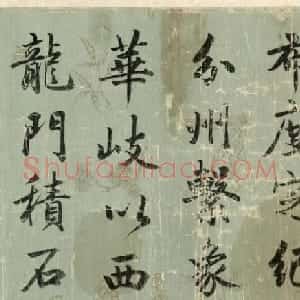 度 紀
分州繫象
華岐以西
龍門積石
Shufaziliao.com